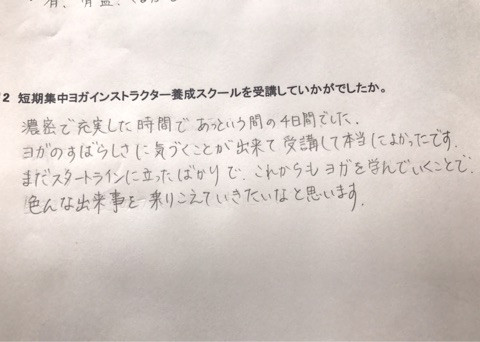 2 短期集中ヨガインストラクター養成スクールを受講していかがでしたか。
濃密で充実した時間であっという間の4日間でした。
ヨガのすばらしさに気づくことが出来て受講して本当によかったです。
まだスタートラインに立ったばかりで、これからもヨガを学んでいくことで、
色んな出来事を乗りこえていきたいなと思います。